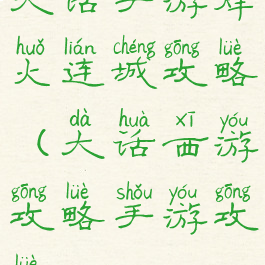 大话手游烽
huǒ lián chéng gōng lüè
火连城攻略
dà huà xī yóu
（大话西游
gōng lüè shǒu yóu gōng
攻略手游攻
lüè